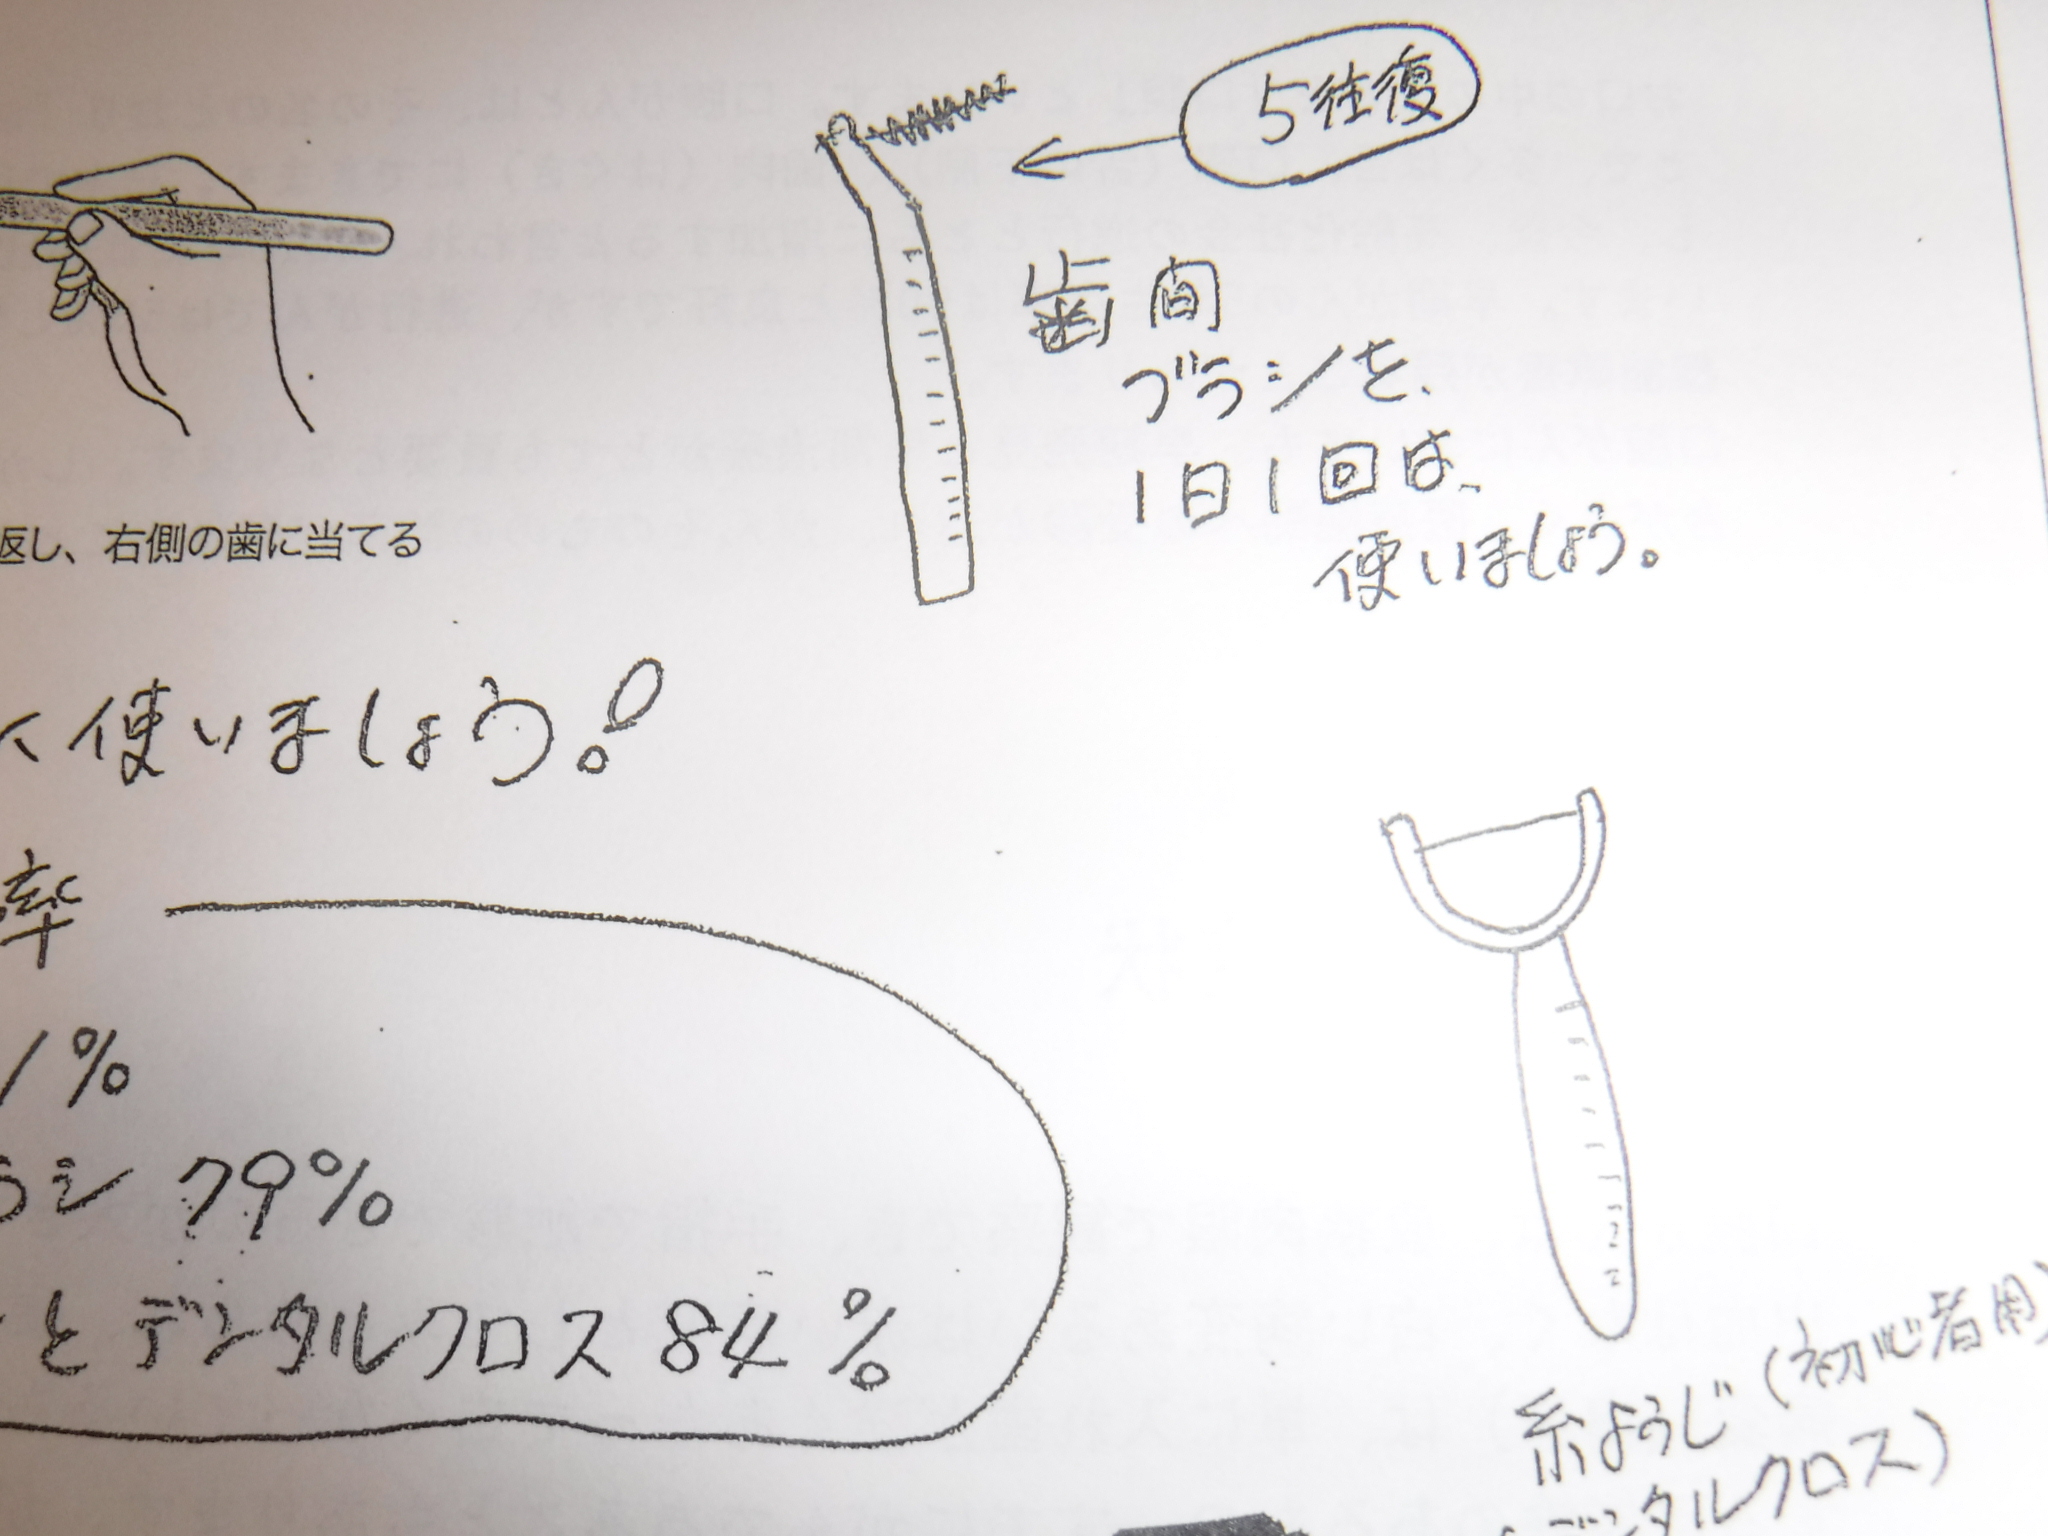 5往復
歯間
ブラシを、
1日1回は、
使いましょう。
返し、右側の歯に当てる
く使いましょう!
率
1%
ラシ 79%
とデンタルクロス 84%
糸ようじ(初心者用)
デンタルクロス)